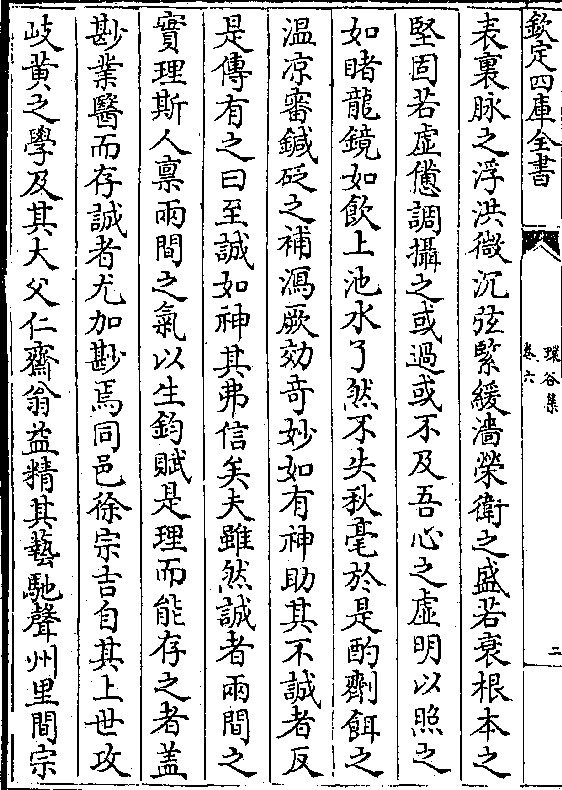 欽定四庫全書
環谷集
卷六
二
表裏脉之浮洪微沉弦緊緩濇榮衛之盛若衰根本之
堅固若虛憊調攝之或過或不及吾心之虛明以照之
如睹龍鏡如飲上池水了然不失秋毫於是酌劑餌之
温凉審鍼砭之補瀉厥効奇妙如有神助其不誠者反
是傳有之曰至誠如神其弗信矣夫雖然誠者兩間之
實理斯人禀兩間之氣以生鈞賦是理而能存之者盖
尠業醫而存誠者尤加尠焉同邑徐宗吉自其上世攻
岐黄之學及其大父仁齋翁益精其藝馳聲州里間宗